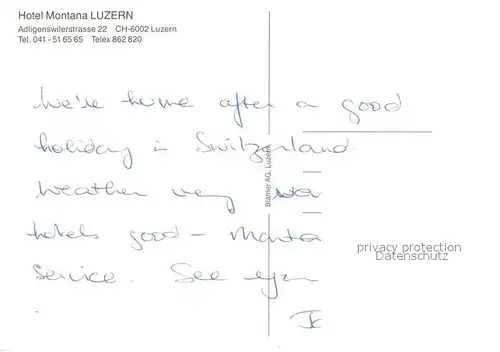 Hotel Montana LUZERN
Adligenswilerstrasse 22 CH-6002 Luzern
Tel. 041 - 51 65 65 Telex 862 820
We're home after a good
holiday in Switzerland.
Weather very
hotels good -
Service. See
Blättler AG, Luzern
privacy protection
Datenschutz